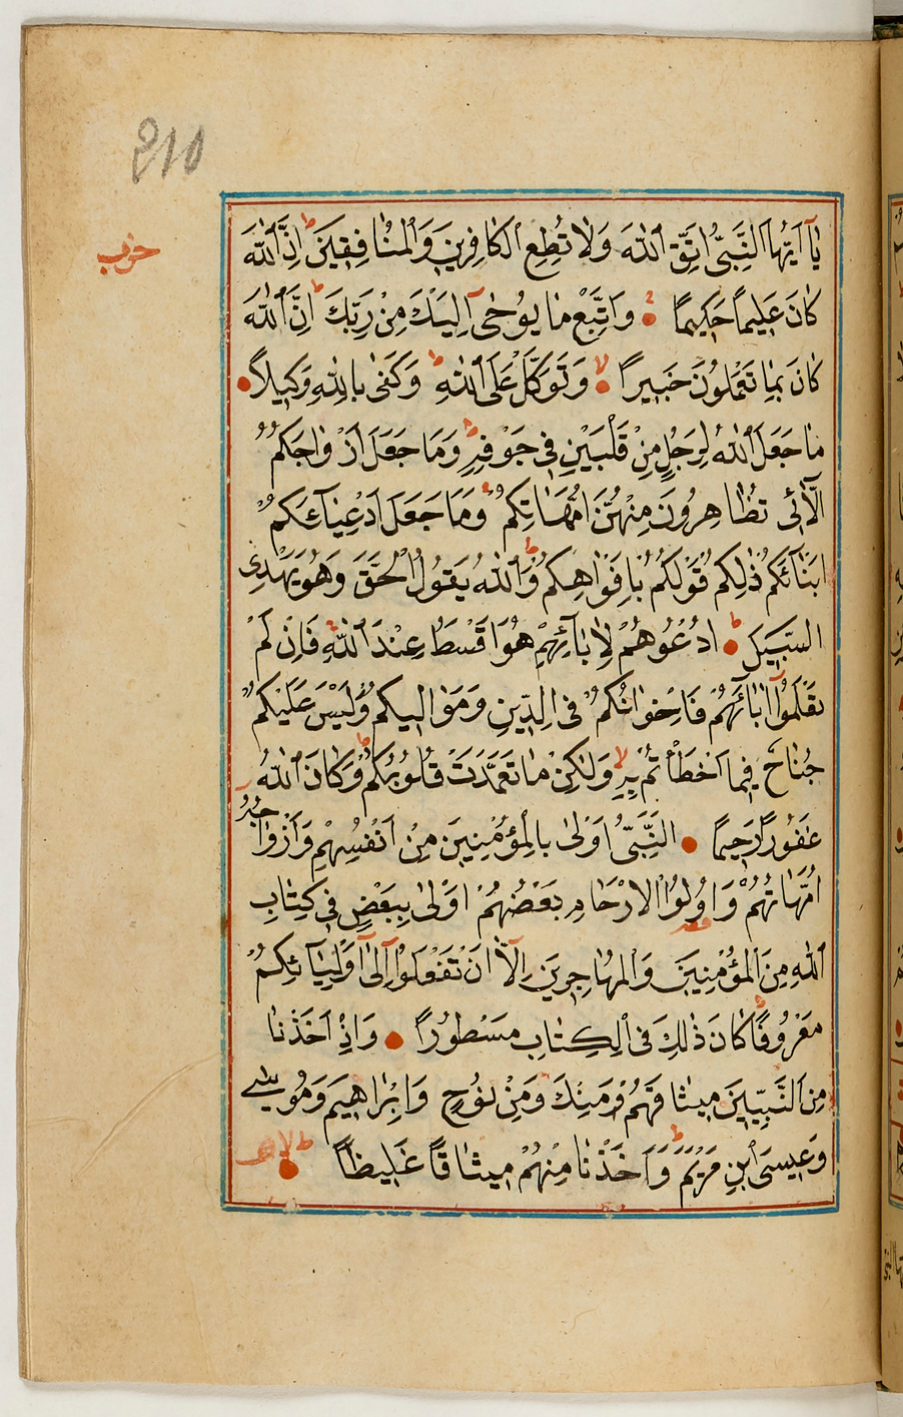 210
حزب
يَآ اَيُّهَا النَّبِىُّ اتَّقِ اللهَ وَلَا تُطِعِ الْكَافِرِينَ وَالْمُنَافِقِينَ ط اِنَّ اللهَ
كَانَ عَلِيماً حَكِيمًا وَاتَّبِعْ مَا يُوحٰى اِلَيْكَ مِنْ رَبِّكَ ط اِنَّ اللهَ
كَانَ بِمَا تَعْمَلُونَ خَبِيرًا لا وَتَوَكَّلْ عَلَى اللهِ ط وَكَفٰى بِاللهِ وَكِيلاً
مَا جَعَلَ اللهُ لِرَجُلٍ مِنْ قَلْبَيْنِ فِى جَوْفِهِ وَمَا جَعَلَ اَزْوَاجَكُمُ
الّٰٓائِى تُظَاهِرُونَ مِنْهُنَّ اُمَّهَاتِكُمْ وَمَا جَعَلَ اَدْعِيَآءَكُمْ
اَبْنَآءَكُمْ ذٰلِكُمْ قَوْلُكُمْ بِاَفْوَاهِكُمْ ط وَاللهُ يَقُولُ الْحَقَّ وَهُوَ يَهْدِى
السَّبِيلَ ط اُدْعُوهُمْ لِاٰبَآئِهِمْ هُوَ اَقْسَطُ عِنْدَ اللهِ فَاِنْ لَمْ
تَعْلَمُوٓا اٰبَآءَهُمْ فَاِخْوَانُكُمْ فِى الدِّينِ وَمَوَالِيكُمْ وَلَيْسَ عَلَيْكُمْ
جُنَاحٌ فِيمَا اَخْطَأْتُمْ بِهِ لا وَلٰكِنْ مَا تَعَمَّدَتْ قُلُوبُكُمْ ط وَكَانَ اللهُ
غَفُورًا رَحِيمًا النَّبِىُّ اَوْلٰى بِالْمُؤْمِنِينَ مِنْ اَنْفُسِهِمْ وَاَزْوَاجُهُ
اُمَّهَاتُهُمْ وَاُولُوا الْاَرْحَامِ بَعْضُهُمْ اَوْلٰى بِبَعْضٍ فِى كِتَابِ
اللهِ مِنَ الْمُؤْمِنِينَ وَالْمُهَاجِرِينَ اِلَّٓا اَنْ تَفْعَلُوٓا اِلٰٓى اَوْلِيَآئِكُمْ
مَعْرُوفًا كَانَ ذٰلِكَ فِى الْكِتَابِ مَسْطُورًا وَاِذْ اَخَذْنَا
مِنَ النَّبِيِّينَ مِيثَاقَهُمْ وَمِنْكَ وَمِنْ نُوحٍ وَاِبْرَاهِيمَ وَمُوسٰى
وَعِيسَى ابْنِ مَرْيَمَ ط وَاَخَذْنَا مِنْهُمْ مِيثَاقًا غَلِيظًا